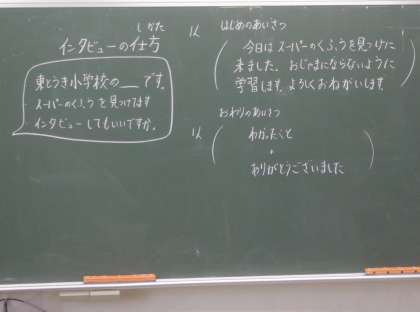 しかた
インタビューの仕方
東とうき小学校の＿です。
スーパーのくふうを見つけてます
インタビューしてもいいですか。
はじめのあいさつ
今日はスーパーのくふうを見つけに
来ました。おじゃまにならないように
学習します。よろしくおねがいします
おわりのあいさつ
わかったこと
+
ありがとうございました